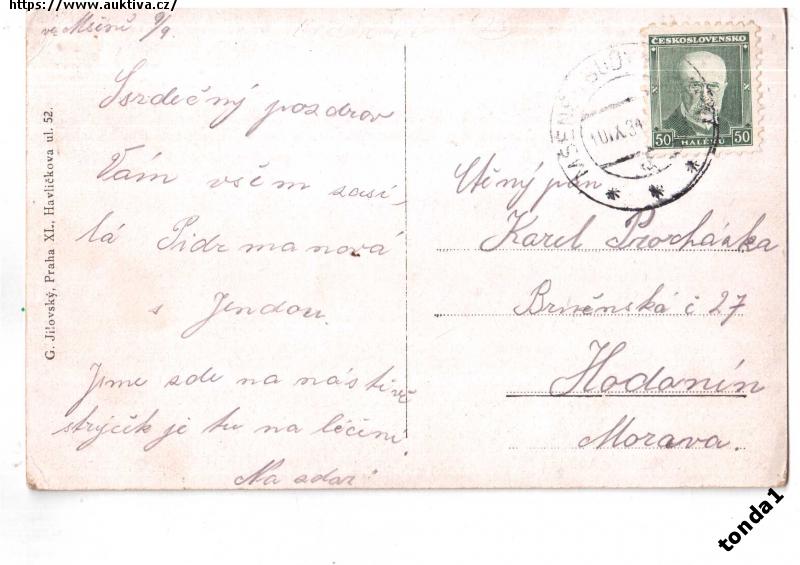 https://www.auktiva.cz/
ve Mšeně 9/9.
Srdečný pozdrav
Vám všem zasí-
lá Pidrmanová
s Jendou.
Jsme zde na návštěvě
strýček je tu na léčení.
Na zdar
G. Jilovský, Praha XI., Havlíčkova ul. 52.
ČESKOSLOVENSKO
50 HALÉŘŮ 50
10.IX.31
Ctěný pan
Karel Procházka
Brněnská č 27
Hodonín
Morava.
tonda1